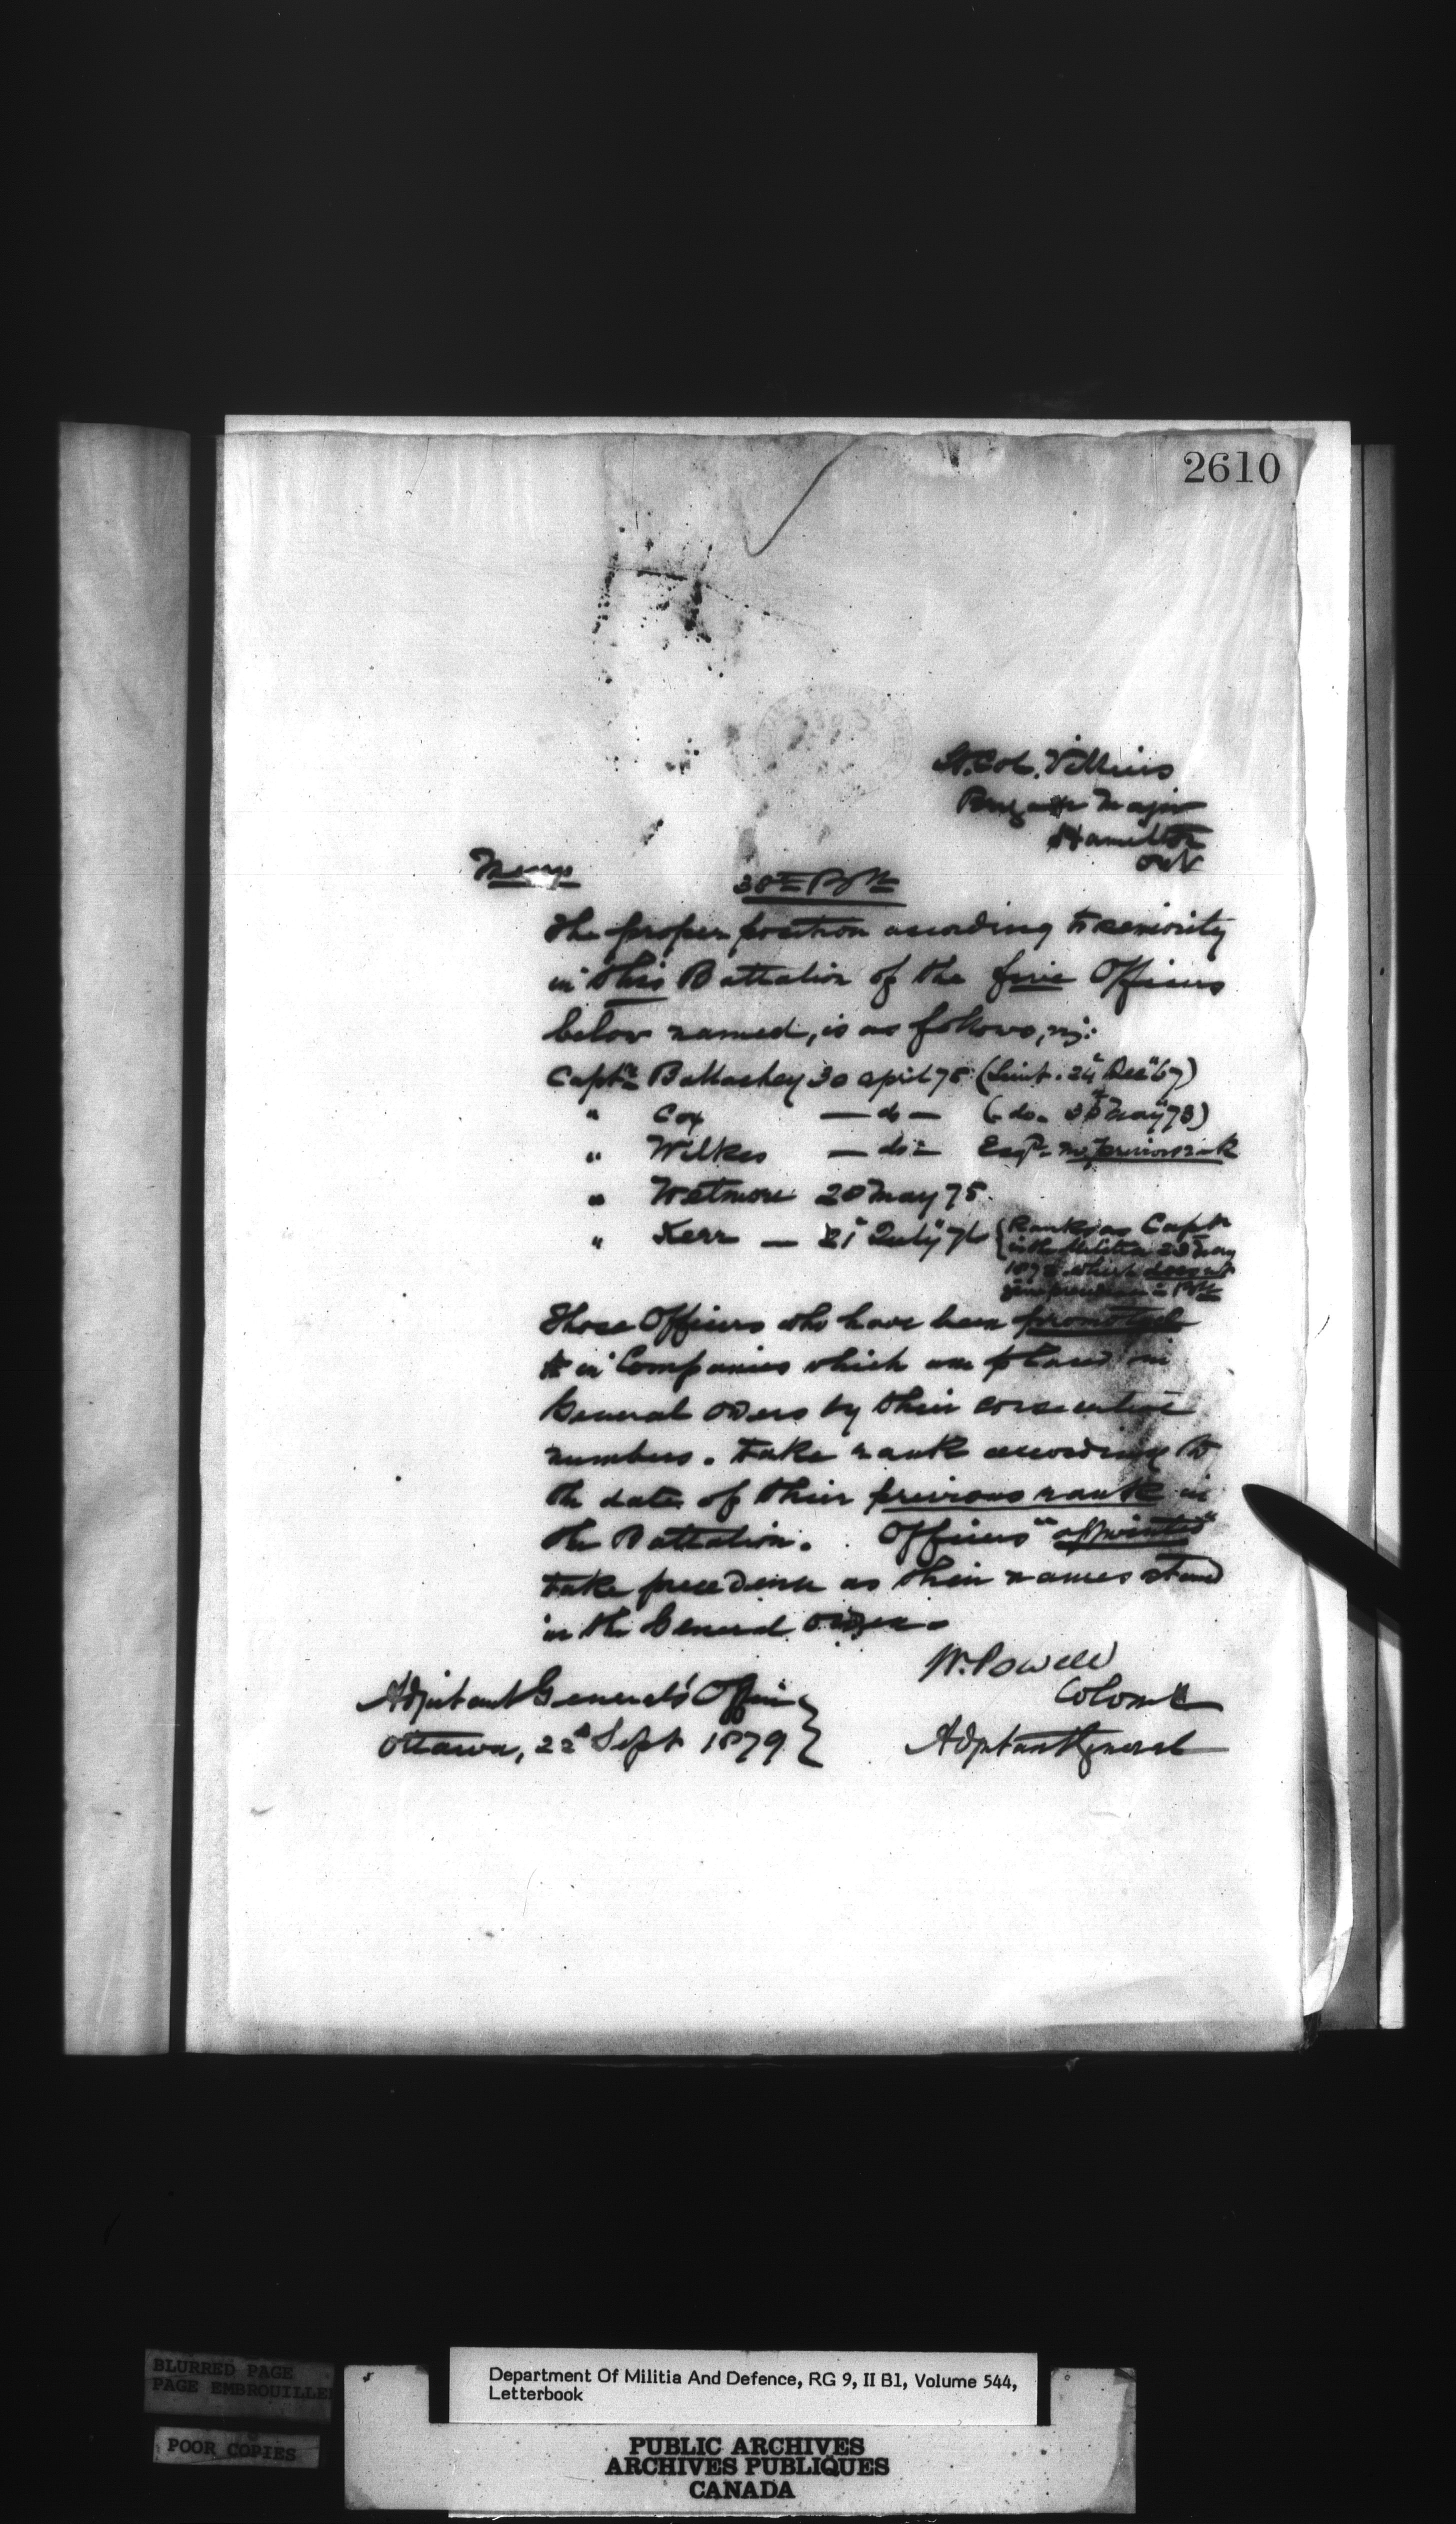 2610
Lt. Col. Villiers
Brigade Major
Hamilton
Ont
Memo
38th Bttn
The proper position according to seniority
in this Battalion of the five Officers
below named, is as follows, viz:
Captn Ballachey 30 April 75 (Lieut. 24 Dec 67)
" Cox — do — (- do - May 73)
" Wilkes — do — Esqr. no previous rank
" Wetmore 28 May 75.
" Kerr — 21 July 76 { Ranks as Captn
in the Militia 28 May
which does not
give precedence in Bttn
Those Officers who have been promoted
to in Companies which are placed in
General Orders by their consecutive
numbers. Take rank according to
the date of their previous rank in
the Battalion. Officers "appointed"
take precedence as their names stand
in the General Order.
W. Powell
Colonel
Adjutant General
Adjutant General's Office
Ottawa, 22d Sept 1879 }
BLURRED PAGE
PAGE EMBROUILLEE
POOR COPIES
Department Of Militia And Defence, RG 9, II B1, Volume 544,
Letterbook
PUBLIC ARCHIVES
ARCHIVES PUBLIQUES
CANADA